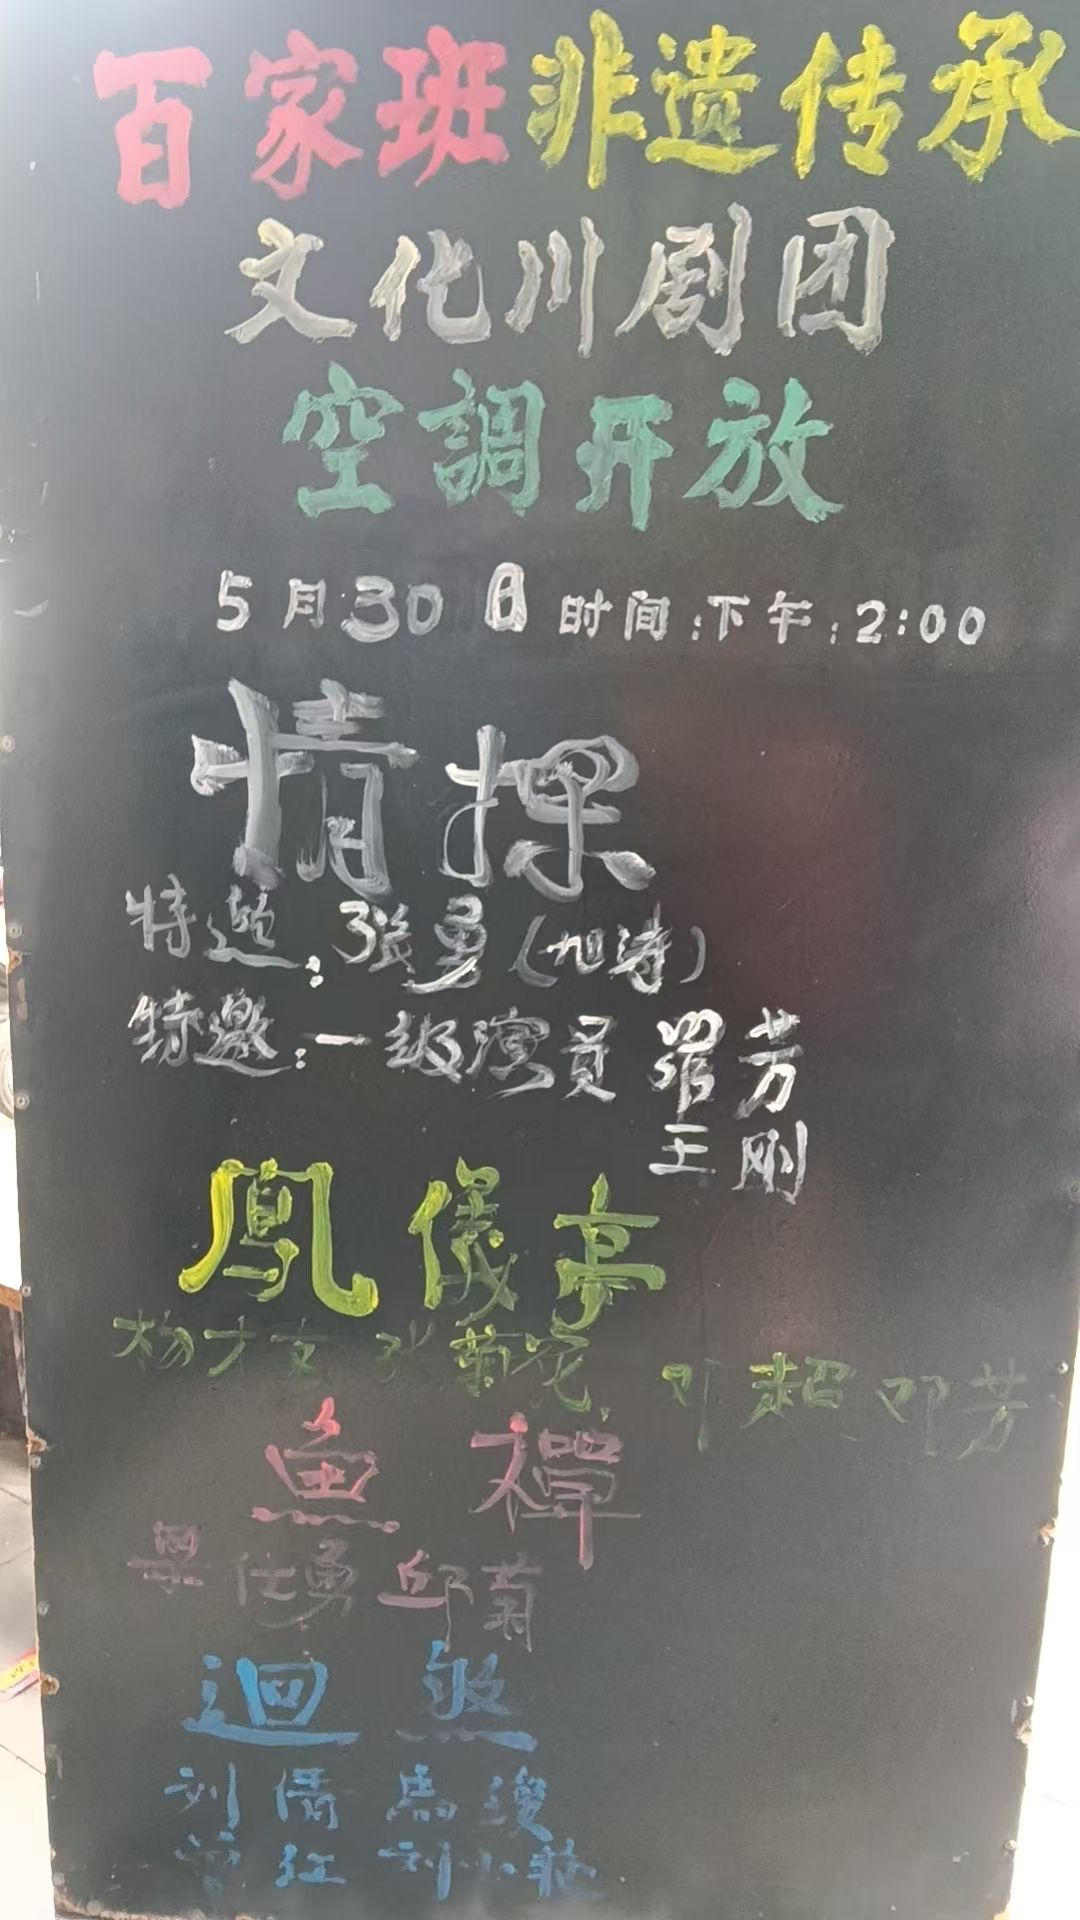 百家班非遗传承
文化川剧团
空調开放
5月30日 时间:下午:2:00
情探
特邀:张勇(旭涛)
特邀:一级演员 罗芳
王刚
鳳儀亭
菊花 邓超 邓芳
魚禪
仕勇 邱菊
迴煞
刘
红 刘小